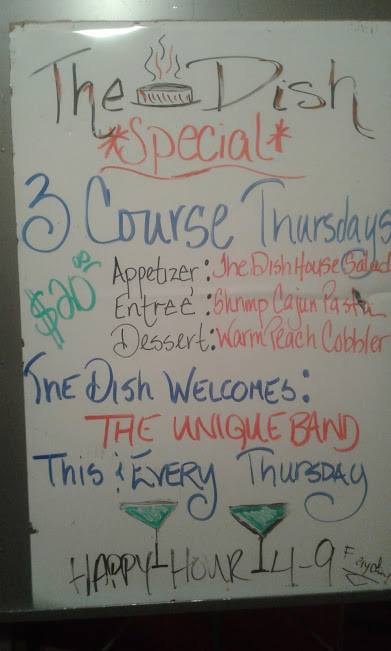 The Dish
*Special*
3 Course Thursdays
$20.00
Appetizer: The Dish House Salad
Entreé: Shrimp Cajun Pasta
Dessert: Warm Peach Cobbler
The Dish Welcomes:
THE UNIQUE BAND
This & EVERY Thursday
HAPPY HOUR 4-9